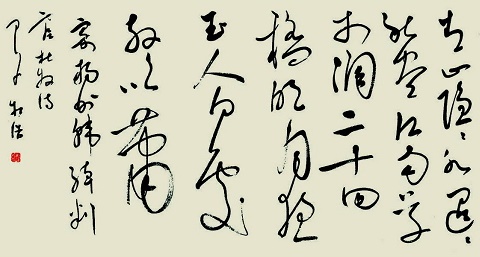 青山隱隱水迢迢
秋盡江南草
未凋二十四
橋明月夜
玉人何處
教吹簫
寄揚州韓綽判
官杜牧詩